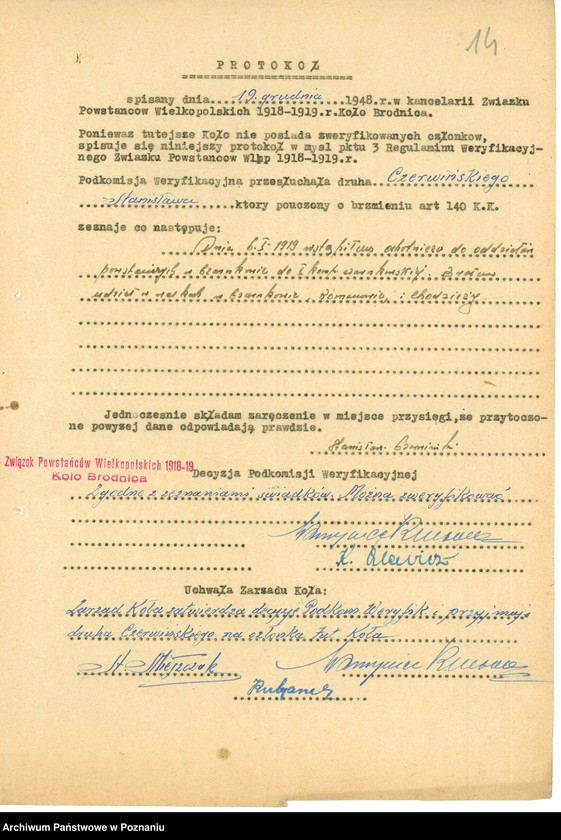 14
PROTOKOŁ
spisany dnia 19. grudnia 1948.r.w kancelarii Zwiazku
Powstancow Wielkopolskich 1918-1919.r.Koło Brodnica.
Poniewaz tutejsze Koło nie posiada zweryfikowanych członkow,
spisuje się niniejszy protokoł w mysl pktu 3 Regulaminu Weryfikacyj-
nego Zwiazku Powstancow Wlkp 1918-1919.r.
Podkomisja Weryfikacyjna przesłuchała druha Czerwińskiego
Stanisława ktory pouczony o brzmieniu art 140 K.K.
zeznaje co następuje:
Dnia 6.I-1919 wstąpiłem ochotniczo do oddziałów
powstańczych w Czarnkowie do I komp czarnkowskiej. Brałem
udział w walkach w Czarnkowie, Romanowie, i Chodzieży
Jednoczesnie składam zaręczenie w miejsce przysięgi,ze przytoczo-
ne powyzej dane odpowiadają prawdzie.
Stanisław Czerwiński
Związek Powstańców Wielkopolskich 1918-19
Koło Brodnica
Decyzja Podkomisji Weryfikacyjnej
Zgodne z zeznaniami świadków. Można zweryfikować
Uchwała Zarzadu Koła:
Zarząd Koła zatwierdza decyzję Podkom. Weryfik. i przyjmuje
druha Czerwińskiego na członka tut. Koła
Archiwum Państwowe w Poznaniu